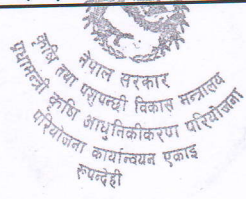 नेपाल सरकार
कृषि तथा पशुपन्छी विकास मन्त्रालय
प्रधानमन्त्री कृषि आधुनिकीकरण परियोजना
परियोजना कार्यान्वयन एकाइ
रुपन्देही